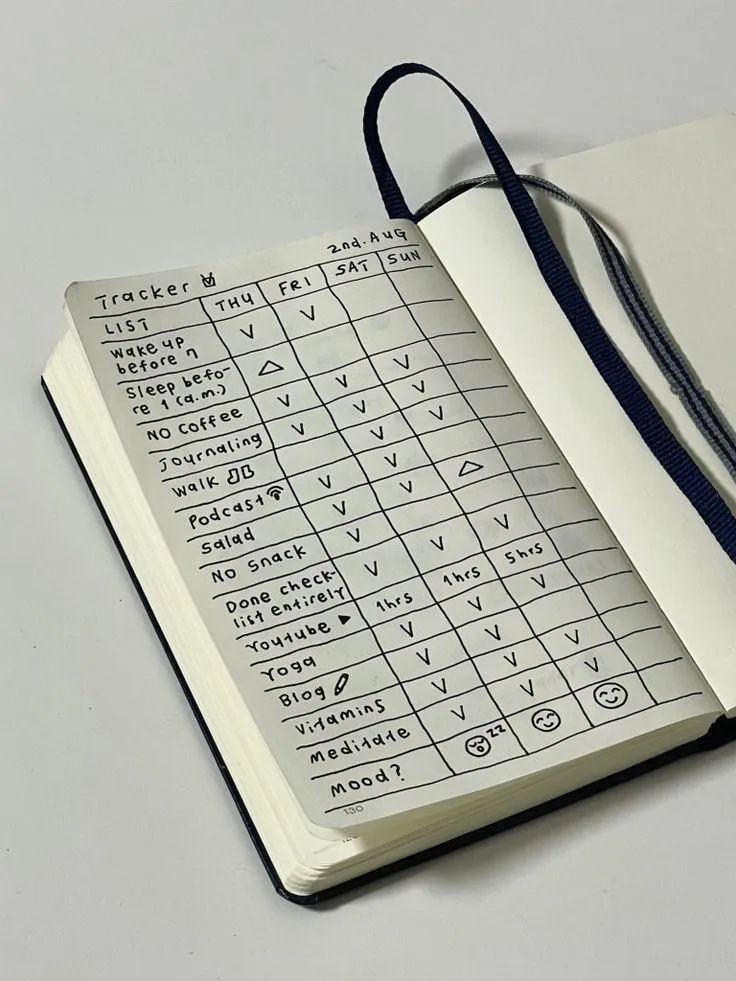 Tracker 2nd. AUG
LIST THU FRI SAT SUN
Wake up V V
before 7
Sleep befo- △
re 1 (a.m.)
NO Coffee V V V
Journaling V V V
Walk V V
Podcast V V
Salad V V △
NO Snack V
Done check- V V V
list entirely
Youtube 1hrs 1hrs 5hrs
Yoga V V V
Blog V V
Vitamins V V V
Meditate V V V
Mood? zz
130